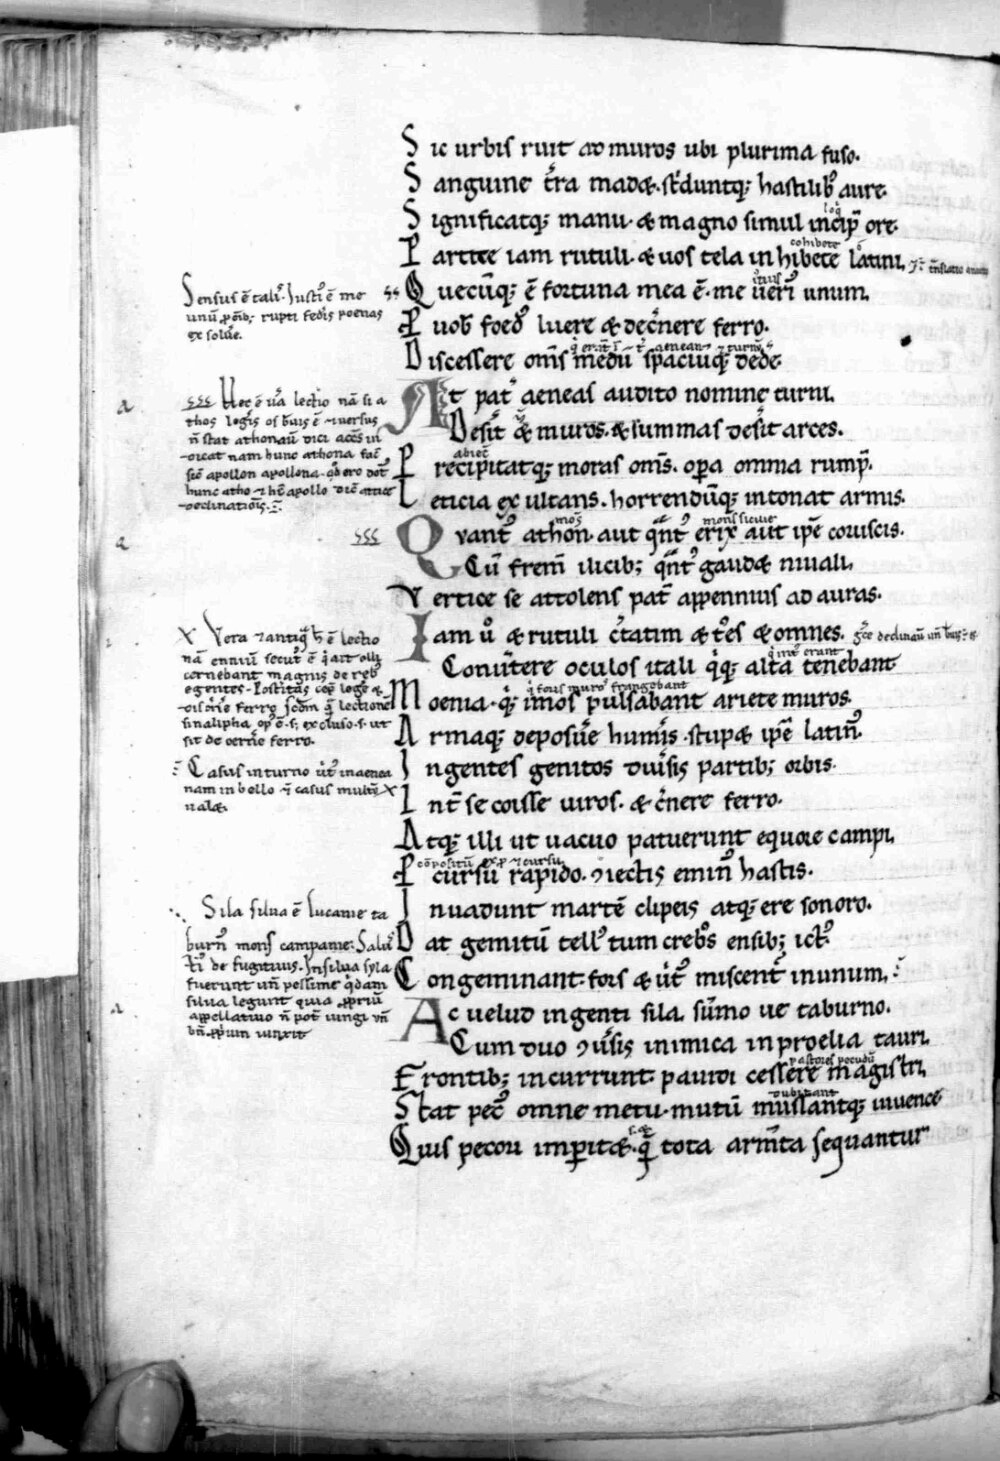 Sic urbis ruit ad muros ubi plurima fuso.
Sanguine t̄ra madꝫ. st᷑duntq; hastilib᷒ aure
Significatq; manu. & magno simul incip̄ ore.
Parcite iam rutuli. & uos tela inhibete latini,
cohibete
Quecūq; ē fortuna mea ē. me ueri᷒ unum.
Ꝓ uob᷒ foed᷒ luere & dec̄nere ferro.
Discessere om̄s mediū spaciūq; dede᷑
At pat᷑ aeneas audito nomine turni.
Deser̄ & muros. & summas deser̄ arces.
Precipitatq; moras om̄s. opa omnia rump̄.
Leticia exultans. horrendūq; intonat armis.
Quant᷒ athon. aut qn̄t᷒ erix aut ip̄e coruscis.
mons sicilie
Cū frem̄ ilicib; qn̄t᷒ gaudꝫ niuali,
Vertice se attolens pat᷑ appennius ad auras.
Iam u᷒ & rutuli c̄tatim & t᷑es & omnes.
Conu᷑tere oculos itali q̇q; alta tenebant
q̇ int᷒ erant
Moenia. q̇q; imos pulsabant ariete muros.
q̇ foris muros frangebant
Armaq; deposu᷑e hum᷑is. stupꝫ ip̄e latin᷒.
Ingentes genitos diu᷑sis partib; orbis.
Int᷑ se coisse uiros. & c̄nere ferro.
Atq; illi ut uacuo patuerunt equore campi,
Ꝓcursu rapido. ꝯiectis emin᷒ hastis.
Inuadunt martē clipeis atq; ere sonoro.
Dat gemitū tell᷒ tum creb᷒s ensib; ict᷒.
Congeminant. fors & uirt᷒ miscent᷑ inunum,
Ac uelud ingenti sila. sūmo ue taburno.
Cum duo ꝯu᷑sis inimica inproelia tauri.
Frontib; incurrunt. pauidi cessere magistri,
pastores pecudū
Stat pec᷒ omne metu. mutū mussantq; iuuence
dubitant
Quis pecori imp̄itꝫ. q̄ tota arm̄ta sequantur
Sensus ē talis. Iusti᷒ ē me
unū ꝓ om̄ib; rupti fed᷑is poenas
exsolu᷑e.
Hec ē u᷑a lectio nā si a
thos leg᷑is os b᷑uis ē & uersus
n̄ stat athonaū dici
nam hunc athona
apollon apollona.
hunc atho & hē apollo
declinatiōis.
Vera & antiq̄ h̄ ē lectio
nā enniū secut᷒ ē q̇ ait olli
cernebant magnis de reb᷒
egentes. Postitas cep̄ lege &
disc᷑ne ferro. Scdm q̄ lectionē
sinalipha op᷒ ē. s; excluso. s. ut
sit de cern᷑e ferro.
Casus inturno u᷑t᷒ inaenea
nam inbello & casus mult᷒
ualꝫ.
Sila silua ē lucanie ta
burn᷒ mons campanie. Salu
sti᷒ de fugitiuis. Insilua syla
fuerunt un̄ pessime q̇dam
silua legunt quia ꝓpriū
appellatiuo n̄ pot᷑ iungi un̄
bn̄ ꝓprium iunxit